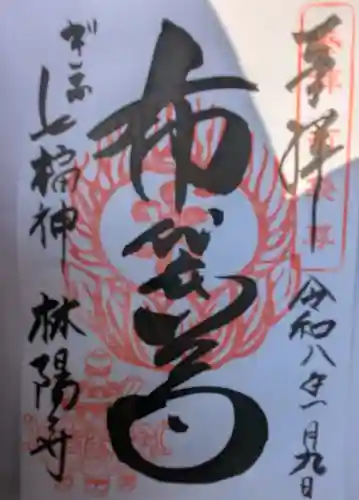 奉拝
令和八年一月九日
布袋尊
ぎふ
七福神 林陽寺